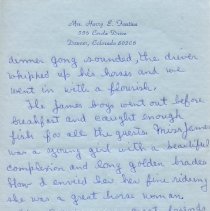 Mrs. Harry E. 
Circle Drive
Denver, Colorado 80206
dinner gong sounded, the driver
whipped up his horses and we
went in with a flourish.
The James boys went out before
breakfast and caught enough
fish for all the guests. Miss James
was a young girl with a beautiful
complexion and long golden braids
How I envied her fine riding
she was a great horse woman.